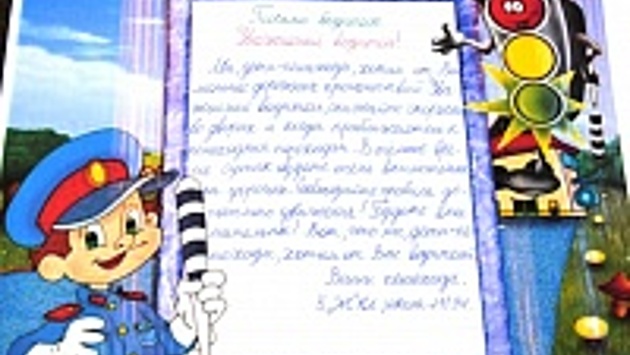 Письмо водителю.
Уважаемый водитель!
Мы, дети-пешеходы, хотим от Вас
дорожных происшествий. Ува-
жаемый водитель, снижайте скорость
во дворах и когда приближаетесь к
пешеходному переходу. В темное вре-
мя суток будьте очень внимательны
на дороге. Соблюдайте правила до-
рожного движения! Будьте вни-
мательны! Вот, что мы, дети-пе-
шеходы, хотим от Вас водитель.
Ваши пешеходы.
5 "Ж" кл. школа